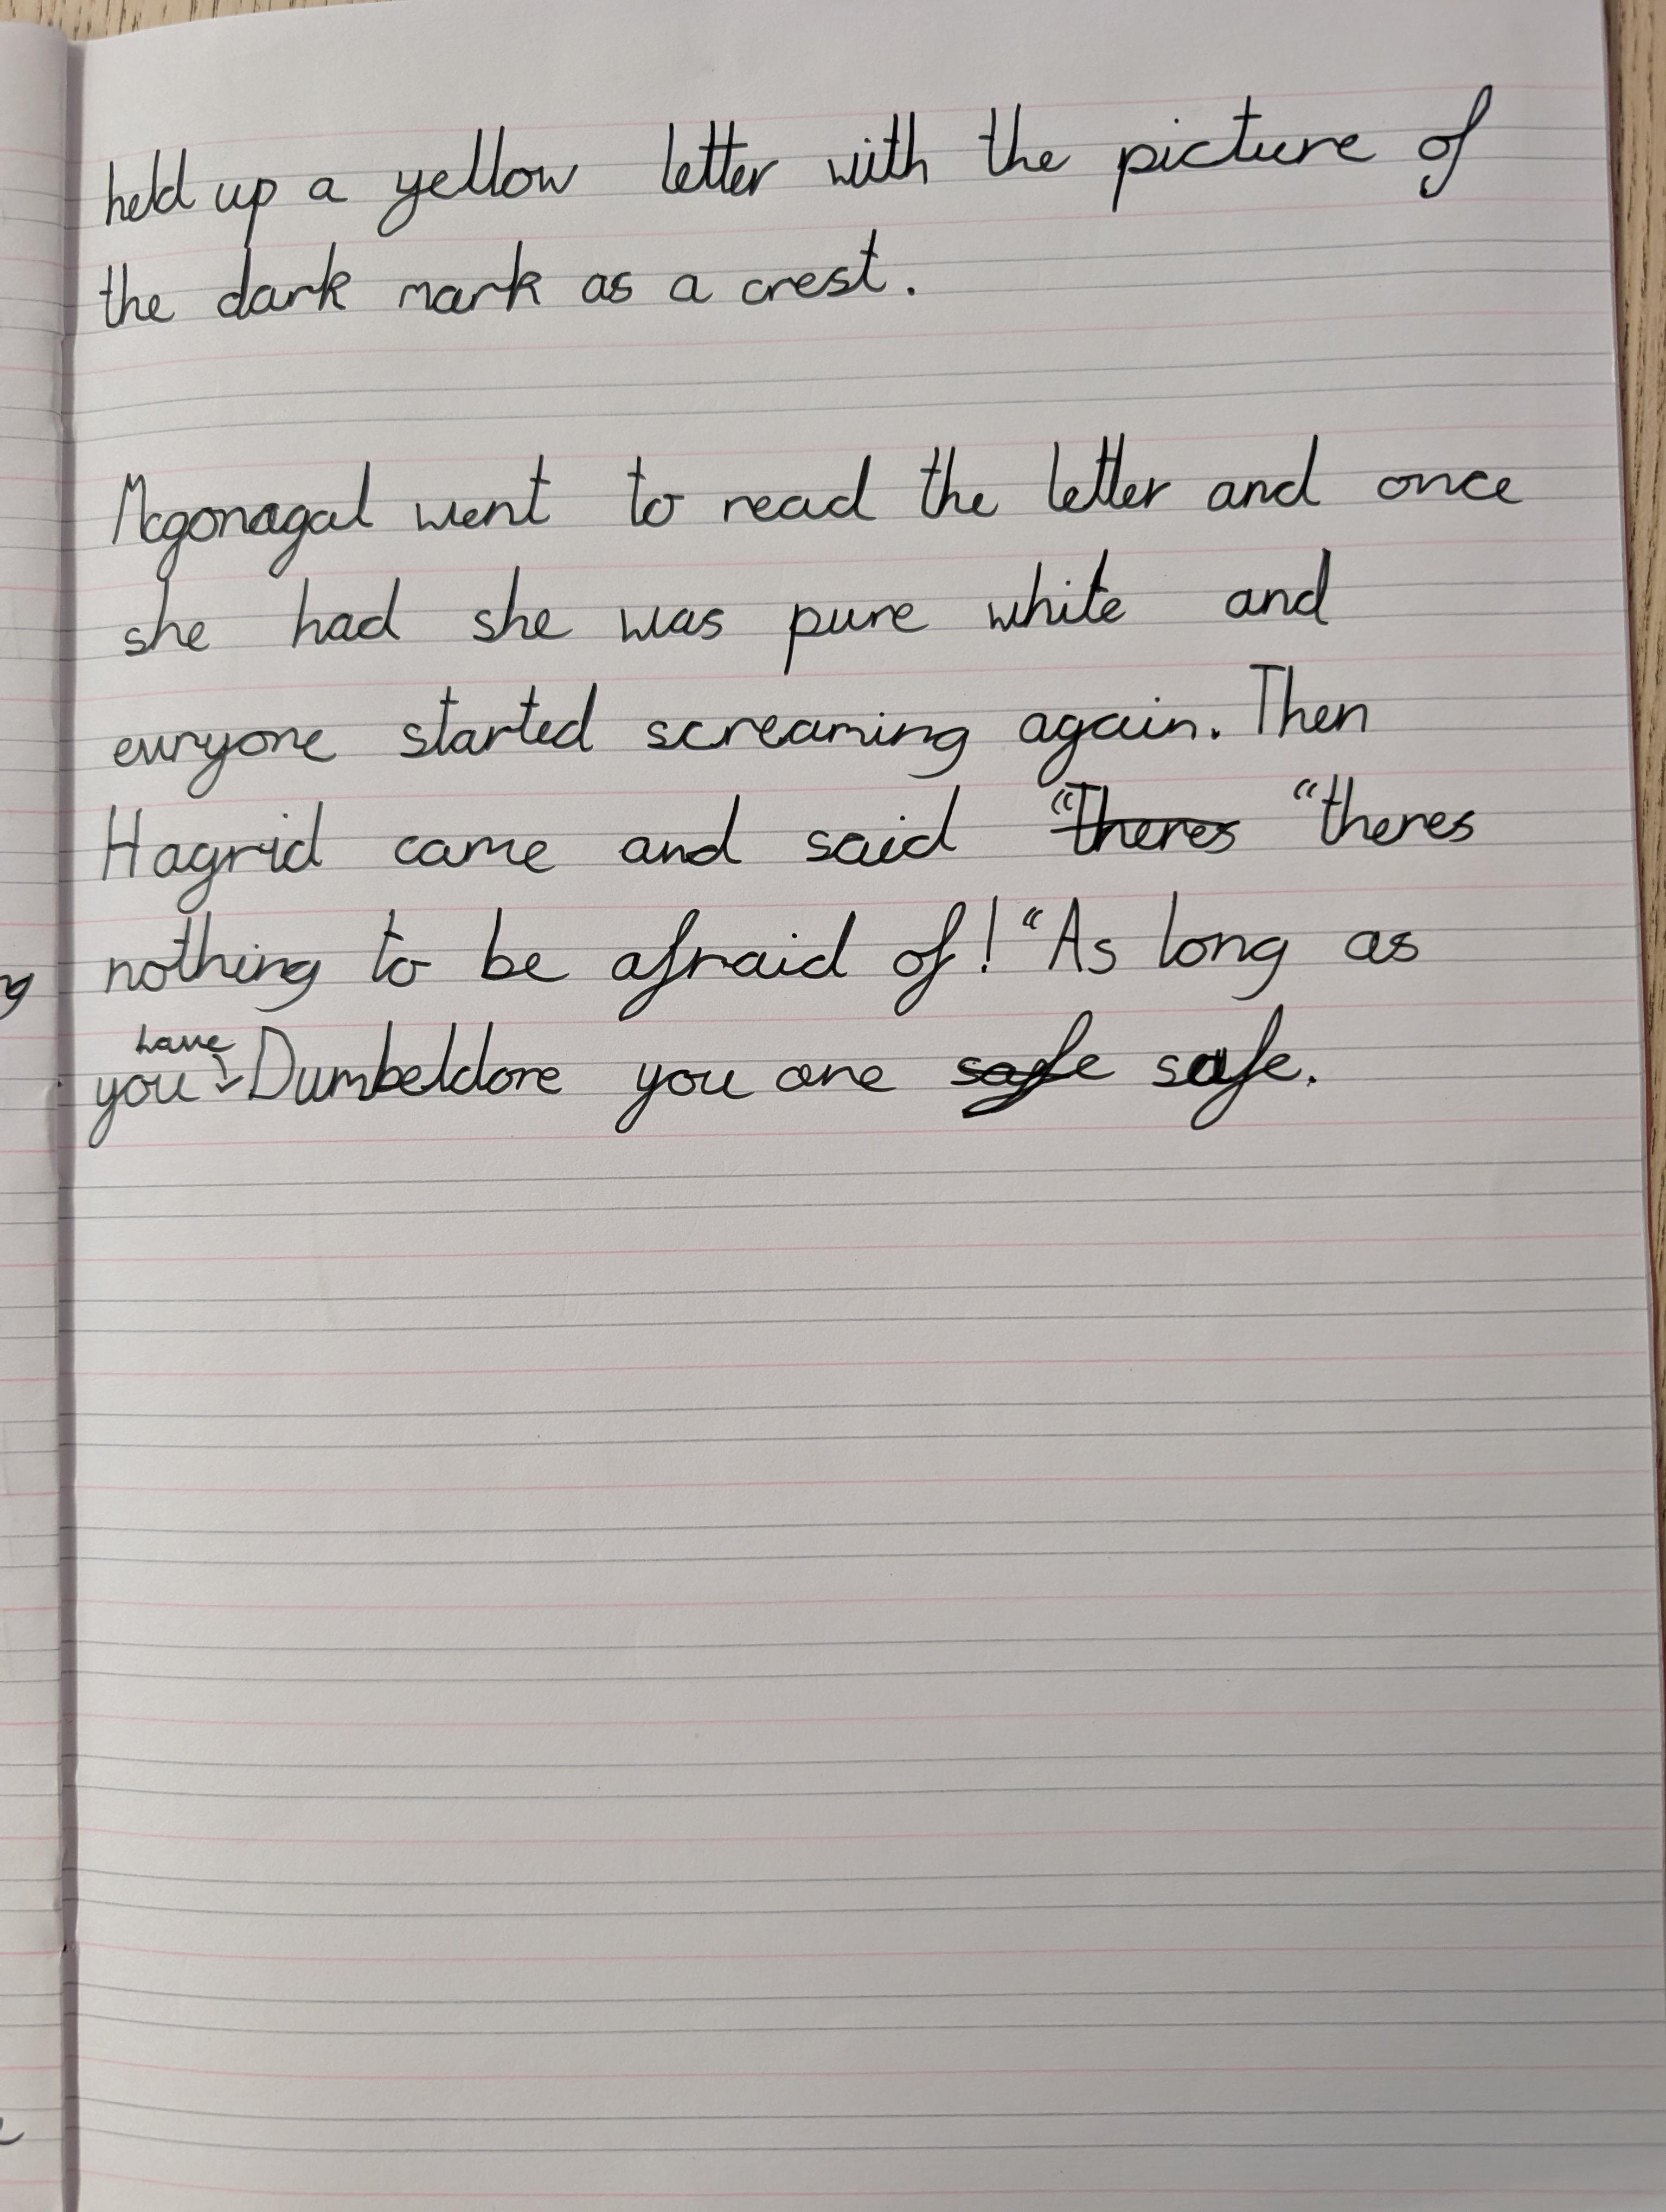 held up a yellow letter with the picture of
the dark mark as a crest.
Mcgonagal went to read the letter and once
she had she was pure white and
evryone started screaming again. Then
Hagrid came and said "Theres "theres
nothing to be afraid of! "As long as
have
you Dumbeldore you are safe safe.